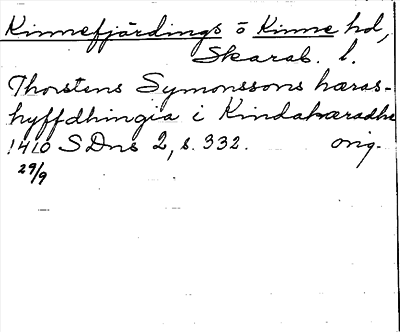 Kinnefjärdings ö Kinne hd,
Skarab. l.
Thorstens Symonssons hæras-
hyffdhingia i Kindahæradhe
1410 SDns 2, s. 332. orig.
29/9